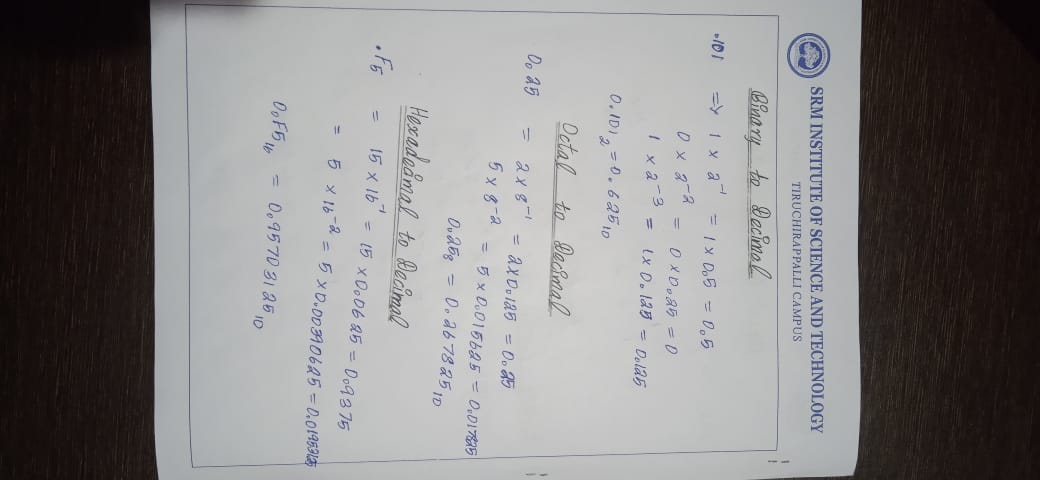 SRM INSTITUTE OF SCIENCE AND TECHNOLOGY
TIRUCHIRAPPALLI CAMPUS
Binary to Decimal
.101 => 1 x 2⁻¹ = 1 x 0.5 = 0.5
0 x 2⁻² = 0 x 0.25 = 0
1 x 2⁻³ = 1 x 0.125 = 0.125
0.101₂ = 0.625₁₀
Octal to Decimal
0.25 = 2 x 8⁻¹ = 2 x 0.125 = 0.25
5 x 8⁻² = 5 x 0.015625 = 0.017825
0.25₈ = 0.267825₁₀
Hexadecimal to Decimal
.F5 = 15 x 16⁻¹ = 15 x 0.0625 = 0.9375
= 5 x 16⁻² = 5 x 0.00390625 = 0.01953125
0.F5₁₆ = 0.95703125₁₀